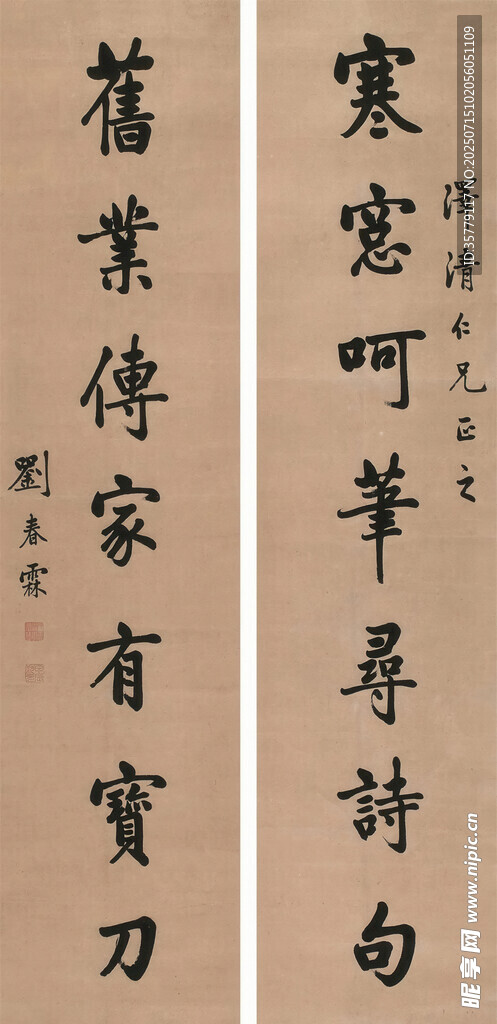 澤清仁兄正之
寒窓呵筆尋詩句
舊業傳家有寶刀
劉春霖
ID:35779117 NO:20250715102056051109
昵享网 www.nipic.cn